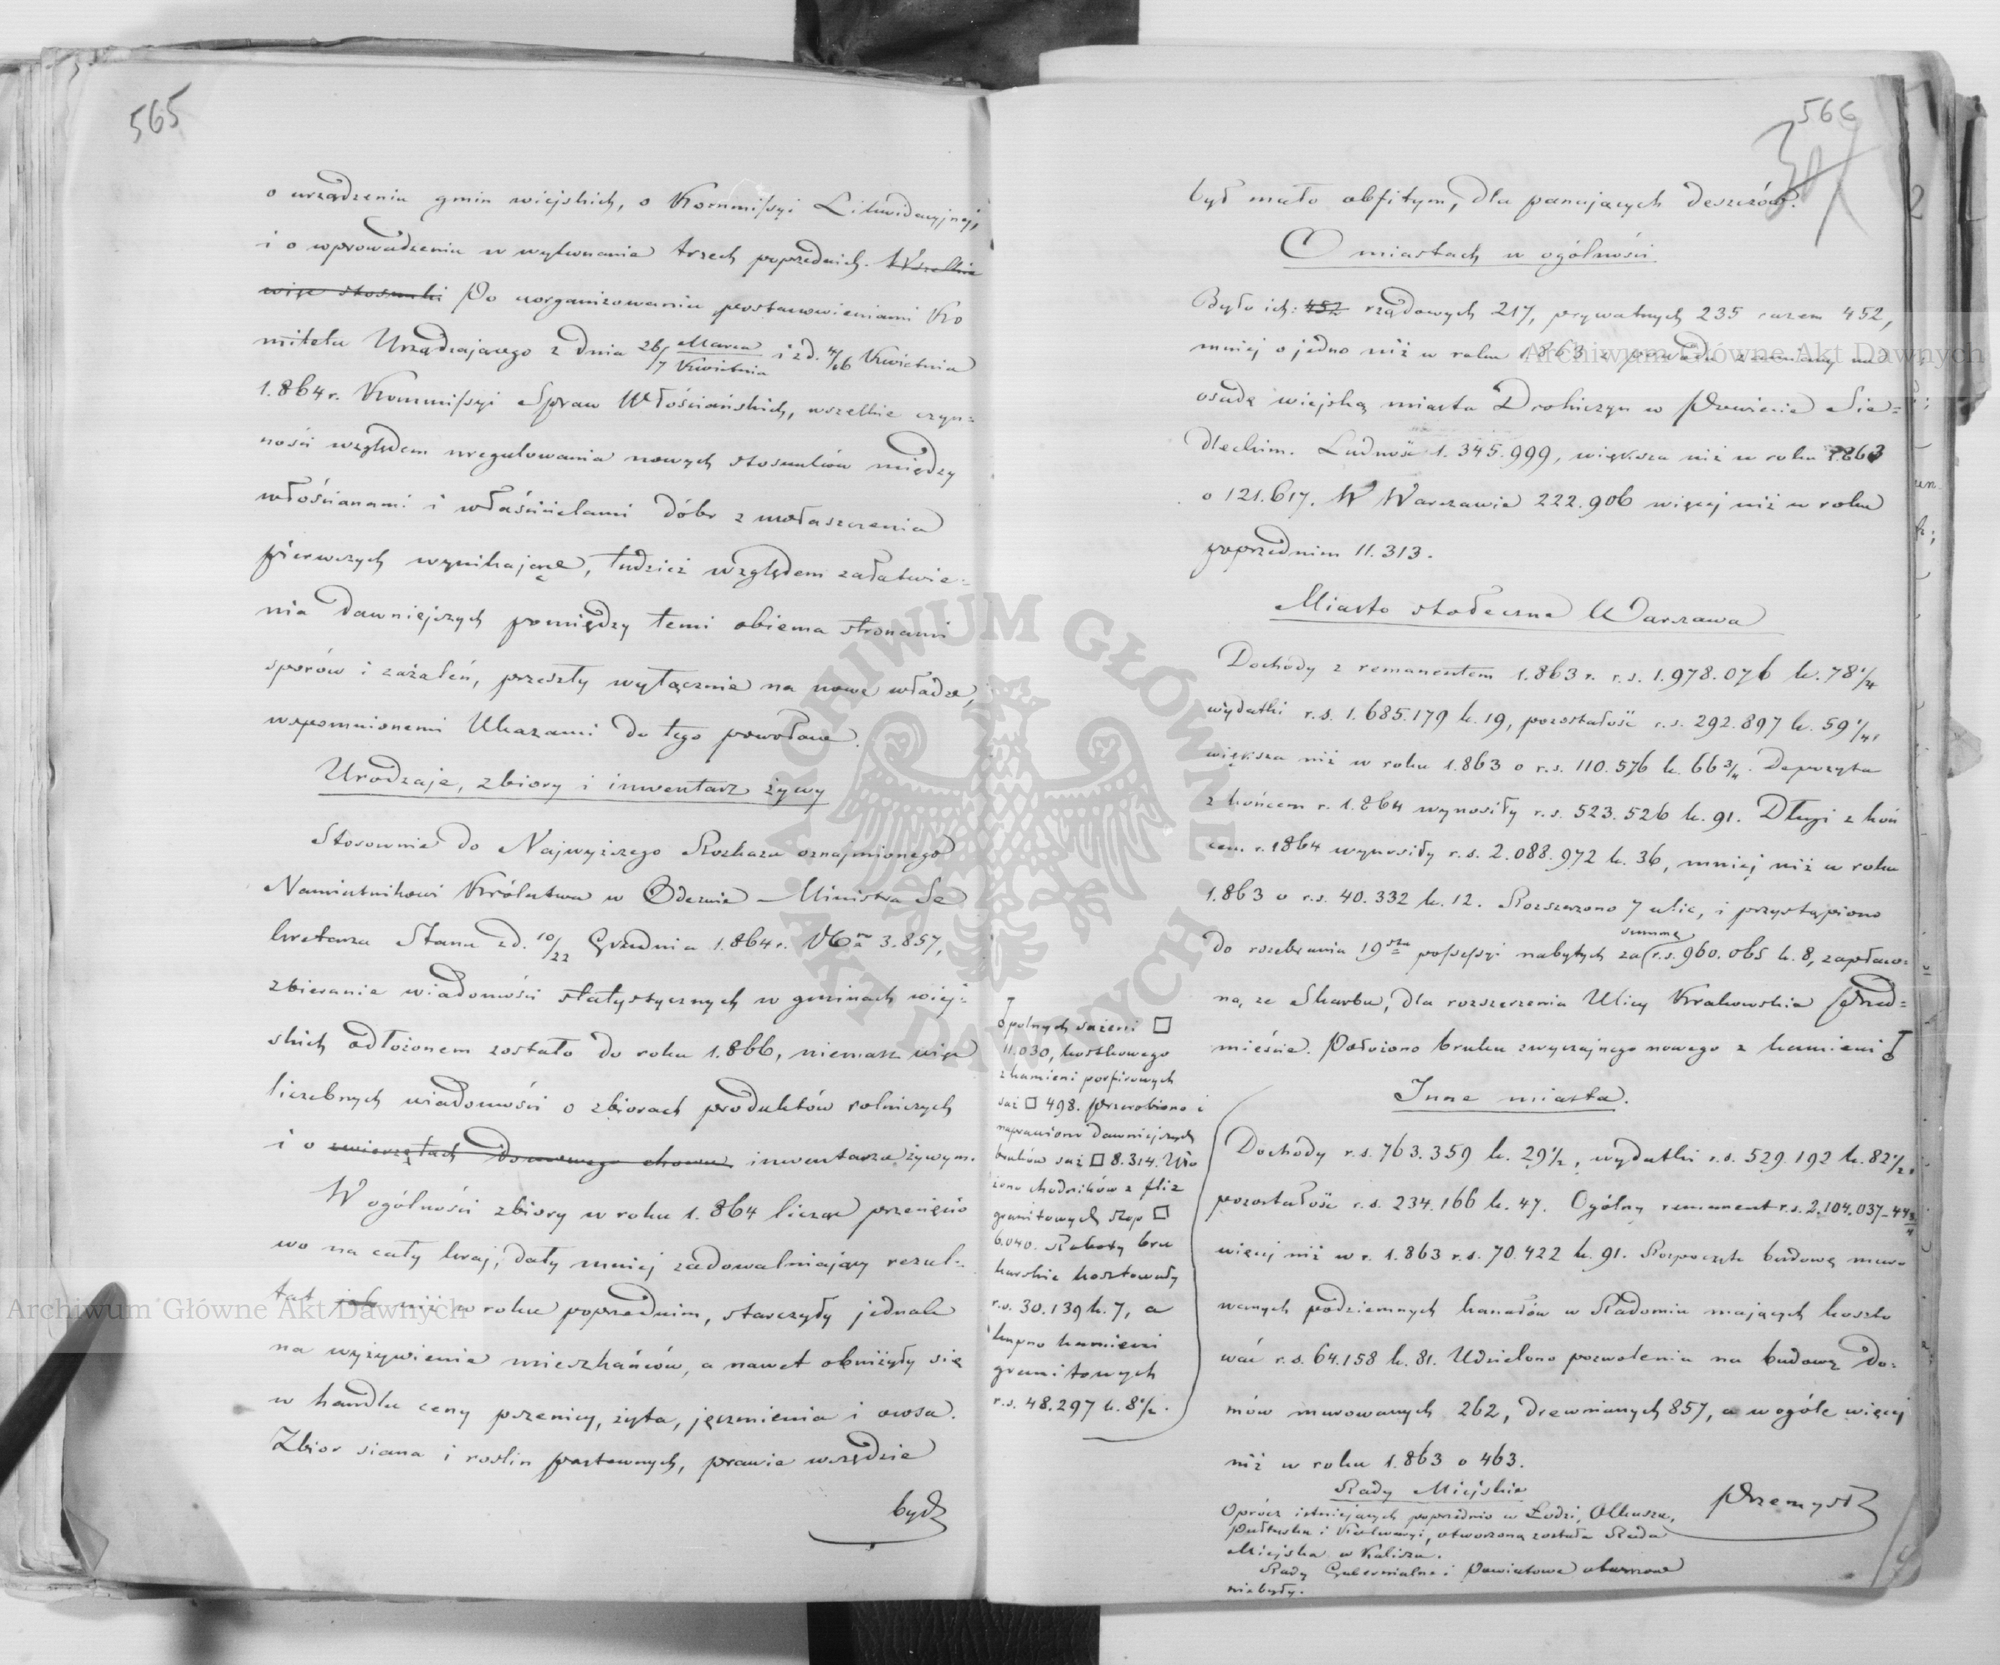 565
o urządzeniu gmin wiejskich, o Kommissyi Likwidacyjnej,
i o wprowadzeniu w wykonanie trzech poprzednich. Wszelkie
więc stosunki Po uorganizowaniu postanowieniami Ko
mitetu Urządzającego z dnia 26/7 Marca/Kwietnia i z d. 4/16 Kwietnia
1.864 r. Kommissyi Spraw Włościańskich, wszelkie czyn=
ności względem uregulowania nowych stosunków między
włościanami i właścicielami dóbr z uwłaszczenia
pierwszych wynikające, tudzież względem załatwie=
nia dawniejszych pomiędzy temi obiema stronami
sporów i zażaleń, przeszły wyłącznie na nowe władze,
wspomnionemi Ukazami do tego powołane.
Urodzaje, zbiory i inwentarz żywy
Stosownie do Najwyższego Rozkazu oznajmionego
Namiestnikowi Królestwa w Odezwie Ministra Se
kretarza Stanu z d. 10/22 Grudnia 1.864 r. No 3.857,
zbieranie wiadomości statystycznych w gminach wiej=
skich odłożonem zostało do roku 1.866, niemasz więc
liczebnych wiadomości o zbiorach produktów rolniczych
i o zwierzętach domowego chowu inwentarzu żywym.
W ogólności zbiory w roku 1.864 licząc przecięcio
wo na cały kraj, dały mniej zadowalniający rezul=
tat jak niż w roku poprzednim, starczyły jednak
na wyżywienie mieszkańców, a nawet obniżyły się
w handlu ceny pszenicy, żyta, jęczmienia i owsa.
Zbior siana i roslin pastewnych, prawie wszędzie
był
566
był mało obfitym, dla panujących deszczów.
O miastach w ogólności
Było ich: 452 rządowych 217, prywatnych 235 razem 452,
mniej o jedno niż w roku 1.863 z powodu zamiany na
osadę wiejską miasta Drohiczyn w Powiecie Sie=
dleckim. Ludność 1.345.999, większa niż w roku 1.863
o 121.617. W Warszawie 222.906 więcej niż w roku
poprzednim 11.313.
Miasto stołeczne Warszawa
Dochody z remanentem 1.863 r. r.s. 1.978.076 k. 78 1/4
wydatki r.s. 1.685.179 k. 19, pozostałość r.s. 292.897 k. 59 1/4,
większa niż w roku 1.863 o r.s. 110.576 k. 66 3/4. Depozyta
z końcem r. 1.864 wynosiły r.s. 523.526 k. 91. Długi z koń
cem r. 1864 wynosiły r.s. 2.088.972 k. 36, mniej niż w roku
1.863 o r.s. 40.332 k. 12. Rozszerzono 7 ulic, i przystąpiono
summę
do rozebrania 19stu possessyi nabytych za r.s. 960.065 k. 8, zapłaco=
ną, ze Skarbu, dla rozszerzenia Ulicy Krakowskie Przed=
mieście. Położono bruku zwyczajnego nowego z kamieni
polnych sażeni □
11.030, kostkowego
z kamieni porfirowych
saż □ 498. Przerobiono i
naprawiono dawniejszych
bruków saż □ 8.314. Uło
żono chodników z fliz
granitowych stop □
6.040. Roboty bru
karskie kosztowały
r.s. 30.139 k. 7, a
kupno kamieni
granitowych
r.s. 48.297 k. 8 1/2.
Inne miasta.
Dochody r.s. 763.359 k. 29 1/2, wydatki r.s. 529.192 k. 82 1/2,
pozostałość r.s. 234.166 k. 47. Ogólny remanent r.s. 2.104.037
więcej niż w r. 1.863 r.s. 70.422 k. 91. Rozpoczęto budowę muro
wanych podziemnych kanałów w Radomiu mających koszto
wać r.s. 64.158 k. 81. Udzielono pozwolenia na budowę do=
mów murowanych 262, drewnianych 857, a w ogóle więcej
niż w roku 1.863 o 463.
Rady Miejskie
Oprócz istniejących poprzednio w Łodzi, Olkuszu,
Pułtusku i Kalwaryi, otworzoną została Rada
Miejska w Kaliszu.
Rady Gubernialne i Powiatowe otwarzane
niebyły.
Przemysł
Archiwum Główne Akt Dawnych
Archiwum Główne Akt Dawnych
ARCHIWUM GŁÓWNE AKT DAWNYCH